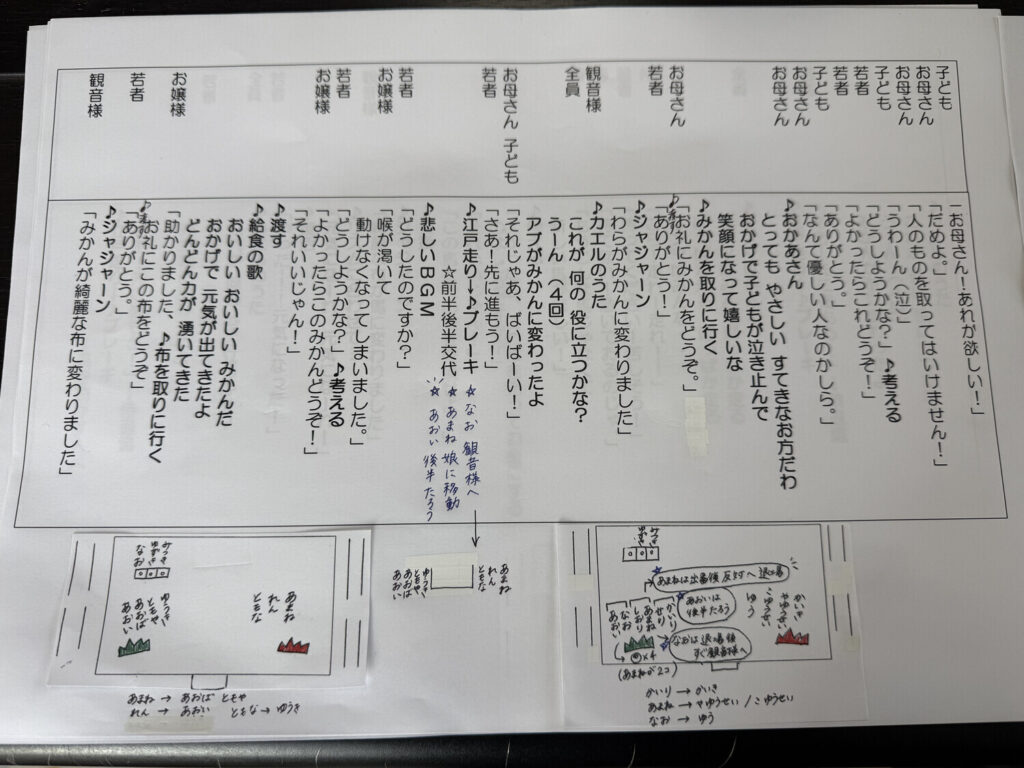 子ども
お母さん
お母さん
子ども
若者
若者
子ども
お母さん
お母さん
お母さん
若者
観音様
全員
お母さん 子ども
若者
若者
お嬢様
若者
お嬢様
お嬢様
若者
観音様
「お母さん!あれが欲しい!」
「だめよ。」
「人のものを取ってはいけません!」
「うわーん(泣)」
「どうしようかな?」 ♪考える
「よかったらこれどうぞ!」
「ありがとう。」
「なんて優しい人なのかしら。」
♪おかあさん
とっても やさしい すてきなお方だわ
おかげで子どもが泣き止んで
笑顔になって嬉しいな
♪みかんを取りに行く
「お礼にみかんをどうぞ。」
「ありがとう!」
♪ジャジャーン
「わらがみかんに変わりました」
♪カエルのうた
これが 何の 役に立つかな?
うーん (4回)
アブがみかんに変わったよ
「それじゃあ、ばいばーい!」
「さあ!先に進もう!」
♪江戸走り→♪ブレーキ
☆前半後半交代
♪悲しいBGM
「どうしたのですか?」
「喉が渇いて
動けなくなってしまいました。」
「どうしようかな?」♪考える
「よかったらこのみかんどうぞ!」
「それいいじゃん!」
♪渡す
♪給食の歌
おいしい おいしい みかんだ
おかげで 元気が出てきたよ
どんどん力が 湧いてきた
「助かりました、♪布を取りに行く
お礼にこの布をどうぞ」
「ありがとう。」
♪ジャジャーン
「みかんが綺麗な布に変わりました」
☆ なお 観音様へ
☆ あまね 娘に移動
☆ あおい 後半たろう
みつき
ゆずき
なお
ゆうき
ともや
あおば
あおい
あまね
れん
ともな
あまね → あおば ともや
れん → あおい ともな → ゆうき
ゆうき
ともや
あおば
あおい
あまね
れん
ともな
みつき
ゆずき
あまねは出番後 反対へ 退場
あおいは
後半たろう
なおは 退場後
すぐ観音様へ
かいり
せり
あまね
しおり
なお
あおい
かいき
やゆうせい
こゆうせい
ゆう
×4
(あまねが2コ)
かいり → かいき
あまね → やゆうせい / こゆうせい
なお → ゆう